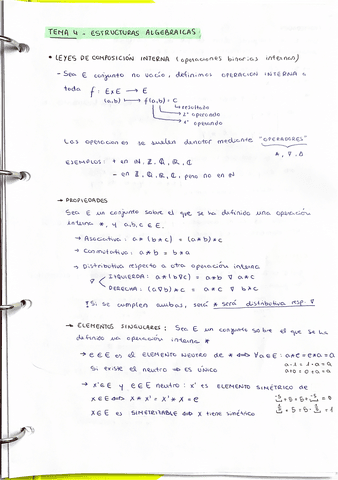 TEMA 4 - ESTRUCTURAS ALGEBRAICAS
• LEYES DE COMPOSICIÓN INTERNA (operaciones binarias internas)
- Sea E conjunto no vacío, definimos OPERACIÓN INTERNA a
toda f: E×E → E
(a,b) ↦ f(a,b) = C
→ resultado
→ 2º operando
→ 1º operando
Las operaciones se suelen denotar mediante "OPERADORES"
*, ∇, Δ
EJEMPLOS: + en ℕ, ℤ, ℚ, ℝ, ℂ
- en ℤ, ℚ, ℝ, ℂ, pero no en ℕ
→ PROPIEDADES
Sea E un conjunto sobre el que se ha definido una operación
interna *, y a,b,c ∈ E.
→ Asociativa: a*(b*c) = (a*b)*c
→ Conmutativa: a*b = b*a
→ Distributiva respecto a otra operación interna
∇ IZQUIERDA: a*(b∇c) = a*b ∇ a*c
DERECHA: (a∇b)*c = a*c ∇ b*c
! Si se cumplen ambas, será * será distributiva resp. ∇
→ ELEMENTOS SINGULARES: Sea E un conjunto sobre el que se ha
definido una operación interna *
→ e ∈ E es el ELEMENTO NEUTRO de * ⟺ ∀a∈E: a*e = e*a = a
Si existe el neutro ⇒ es único
a·1 = 1·a = a
a+0 = 0+a = a
→ x' ∈ E y e ∈ E neutro: x' es ELEMENTO SIMÉTRICO de
x ∈ E ⟺ x * x' = x' * x = e
x ∈ E es SIMETRIZABLE ⟺ x tiene simétrico